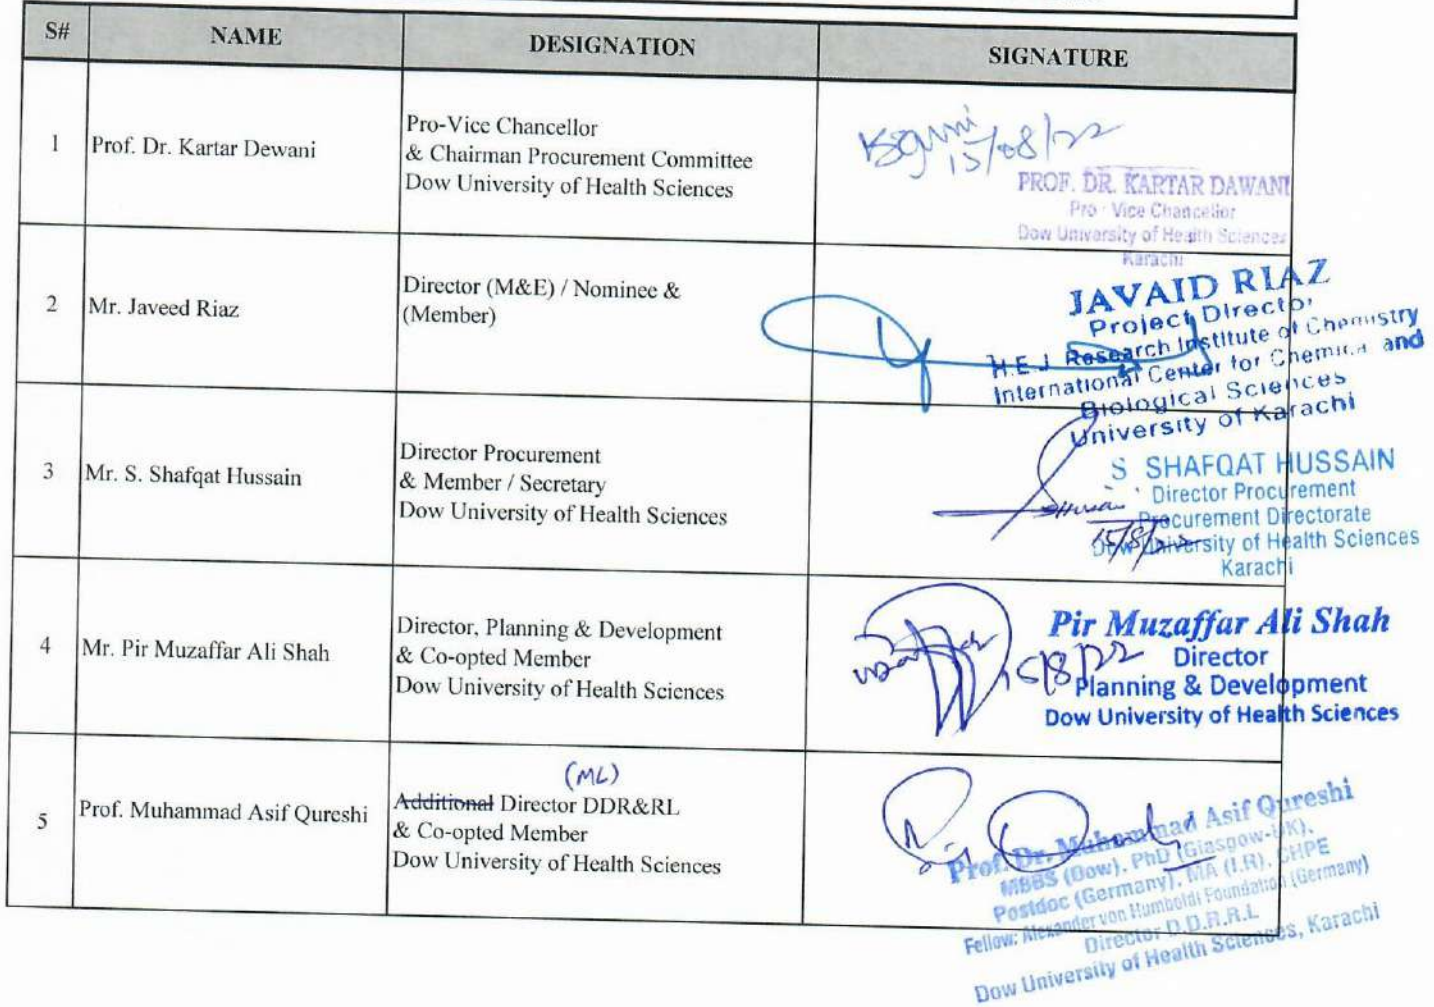 S# NAME DESIGNATION SIGNATURE
1 Prof. Dr. Kartar Dewani
Pro-Vice Chancellor
& Chairman Procurement Committee
Dow University of Health Sciences
15/08/22
PROF. DR. KARTAR DAWANI
Pro - Vice Chancellor
Dow University of Health Sciences
Karachi
2 Mr. Javeed Riaz
Director (M&E) / Nominee &
(Member)
JAVAID RIAZ
Project Director
H.E.J. Research Institute of Chemistry
International Center for Chemical and
Biological Sciences
University of Karachi
3 Mr. S. Shafqat Hussain
Director Procurement
& Member / Secretary
Dow University of Health Sciences
S SHAFQAT HUSSAIN
Director Procurement
Procurement Directorate
Dow University of Health Sciences
Karachi
Hussain
15/8/22
4 Mr. Pir Muzaffar Ali Shah
Director, Planning & Development
& Co-opted Member
Dow University of Health Sciences
15/8/22
Pir Muzaffar Ali Shah
Director
Planning & Development
Dow University of Health Sciences
5 Prof. Muhammad Asif Qureshi
(ML)
Additional Director DDR&RL
& Co-opted Member
Dow University of Health Sciences
Prof. Dr. Muhammad Asif Qureshi
MBBS (Dow), PhD (Glasgow-UK),
Postdoc (Germany), MA (I.R), CHPE
Fellow: Alexander von Humboldt Foundation (Germany)
Director D.D.R.R.L
Dow University of Health Sciences, Karachi